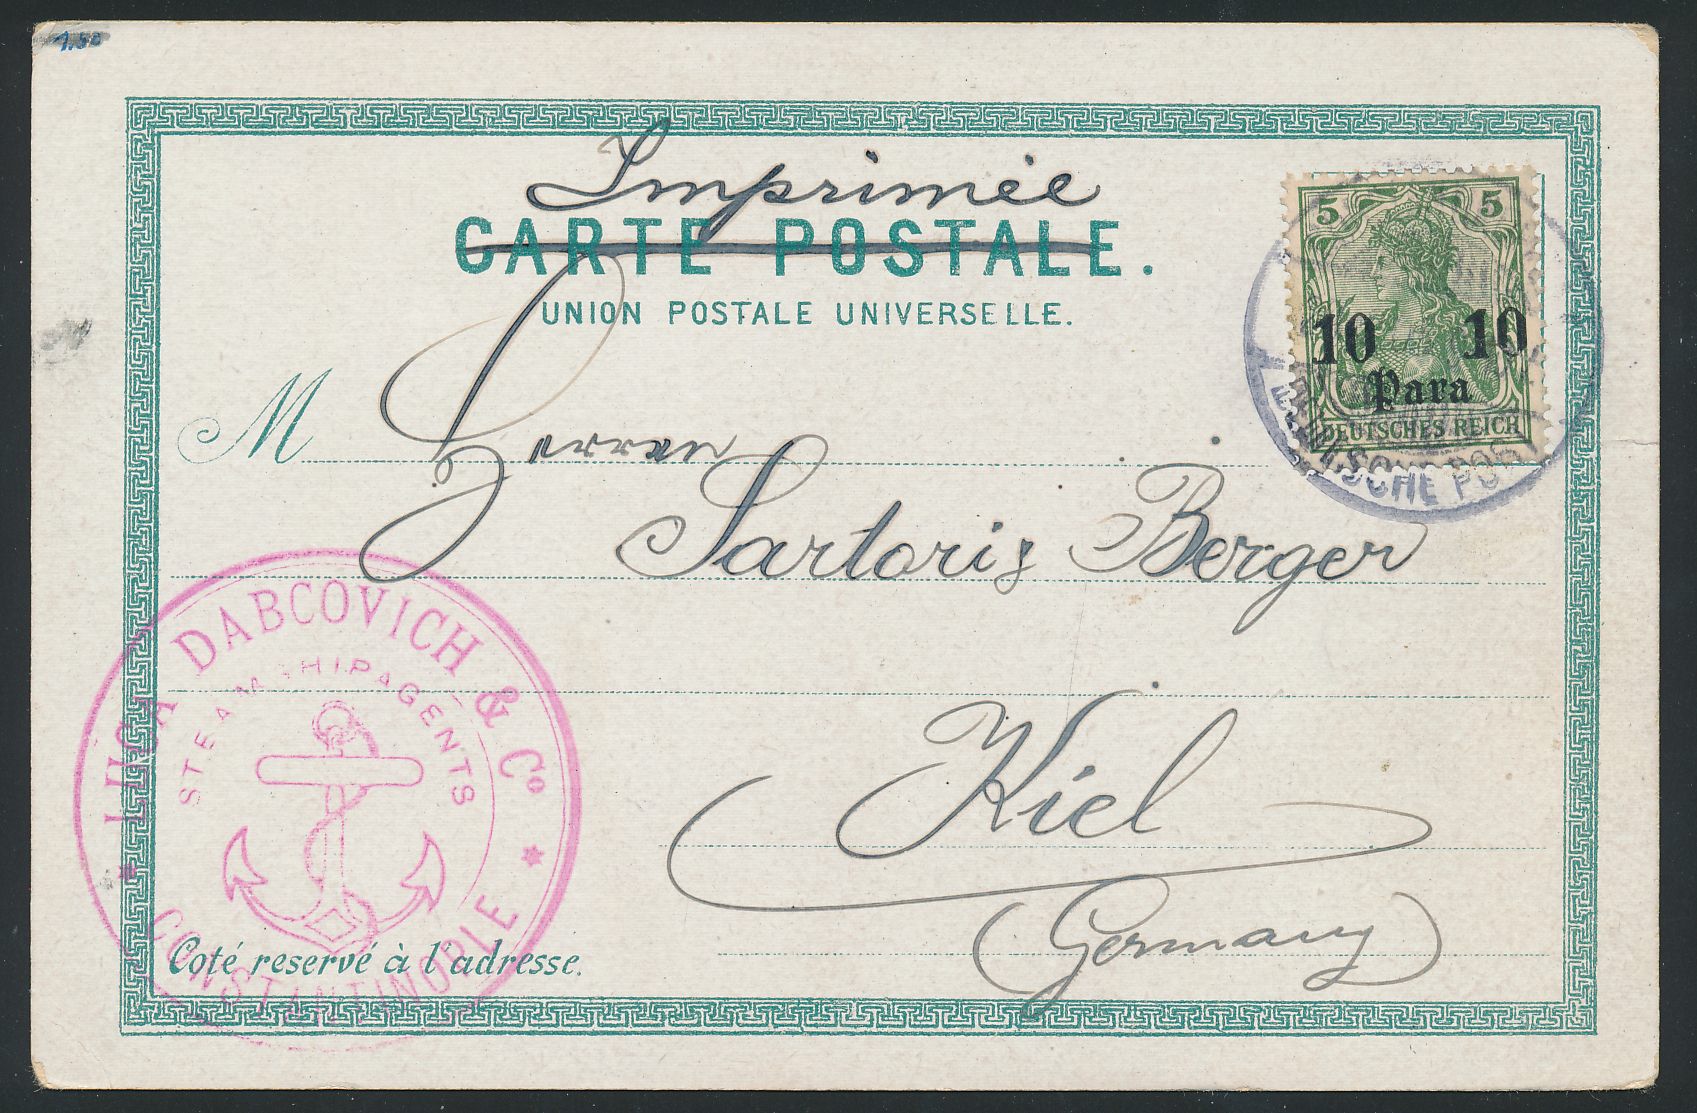 1.50
Imprimée
CARTE POSTALE.
UNION POSTALE UNIVERSELLE.
5 5
10 10
Para
DEUTSCHES REICH
DEUTSCHE POST
M Herren
Sartori & Berger
Kiel
(Germany)
LUCA DABCOVICH & Co
STEAMSHIP AGENTS
CONSTANTINOPLE
Coté reservé à l'adresse.